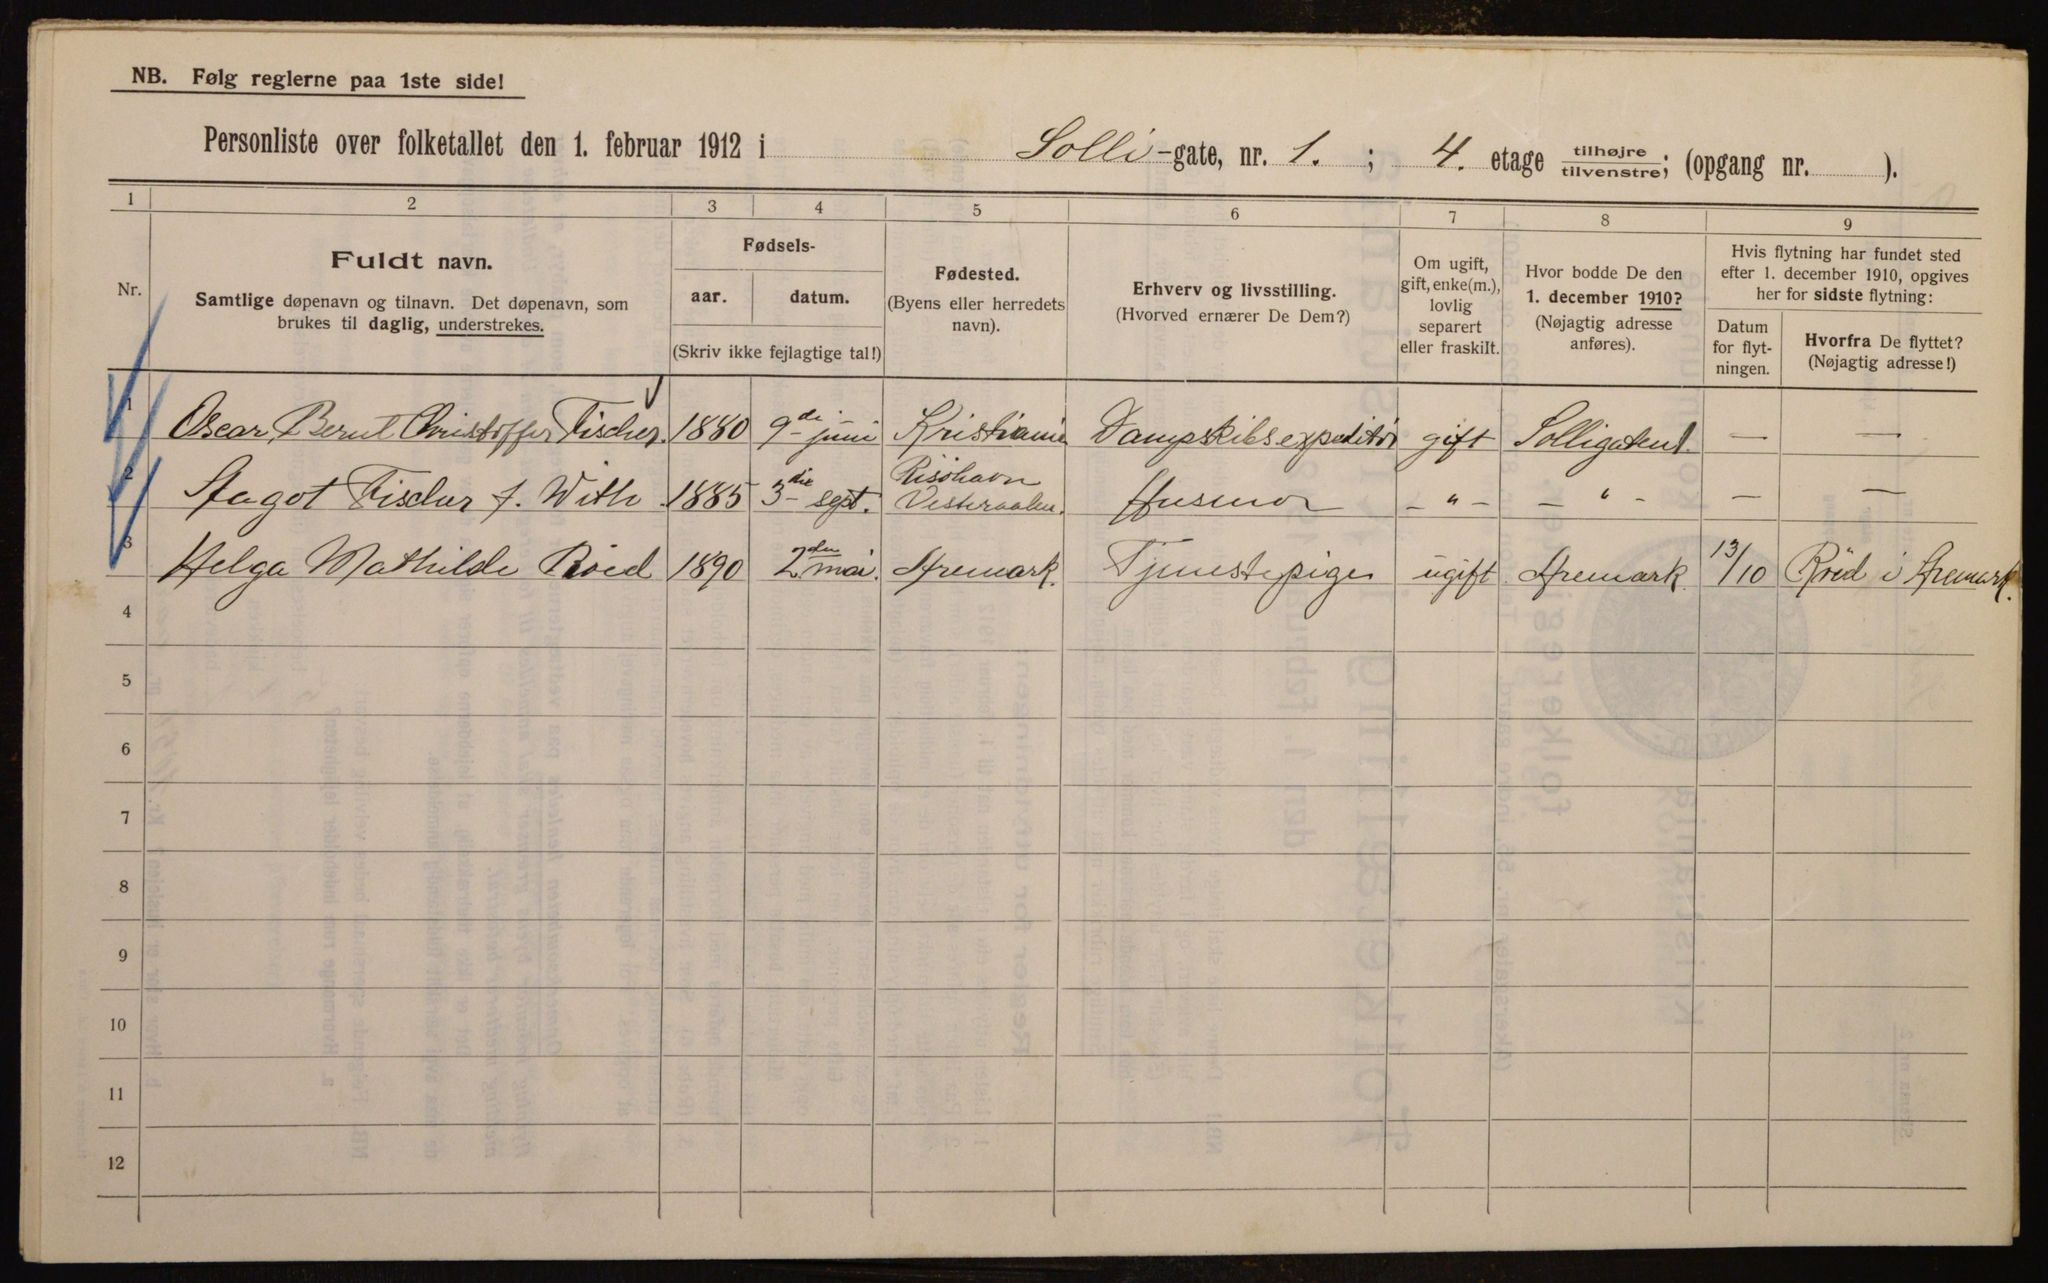 NB. Følg reglerne paa 1ste side!
Personliste over folketallet den 1. februar 1912 i Solli-gate, nr. 1. ; 4. etage tilhøjre/tilvenstre; (opgang nr. ).
1 2 3 4 5 6 7 8 9
Nr.
Fuldt navn.
Samtlige døpenavn og tilnavn. Det døpenavn, som
brukes til daglig, understrekes.
Fødsels-
aar. datum.
(Skriv ikke fejlagtige tal!)
Fødested.
(Byens eller herredets
navn).
Erhverv og livsstilling.
(Hvorved ernærer De Dem?)
Om ugift,
gift, enke(m.),
lovlig
separert
eller fraskilt.
Hvor bodde De den
1. december 1910?
(Nøjagtig adresse
anføres).
Hvis flytning har fundet sted
efter 1. december 1910, opgives
her for sidste flytning:
Datum
for flyt-
ningen.
Hvorfra De flyttet?
(Nøjagtig adresse!)
1 Oscar Bernt Christoffer Fischer. 1880 9di juni Kristiania Dampskibsexpeditør gift Solligaten 1. — —
2 Aagot Fischer f. With. 1885 3die sept. Risöhavn Vesteraalen. Husmor — " — — " — — —
3 Helga Mathilde Röed 1890 2den mai. Aremark. Tjenestepige ugift Aremark. 13/10 Röed i Aremark.
4
5
6
7
8
9
10
11
12